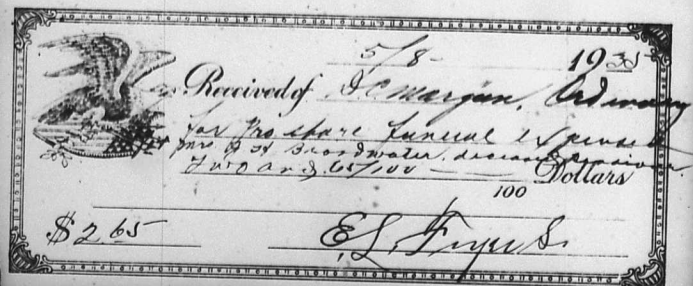 5/8 19
Received of Morgan, Ordinary
for Pro share funeral expense
Mrs Broadwater, deceased
Two and 65/100 Dollars
100
$ 2.65 E. L.